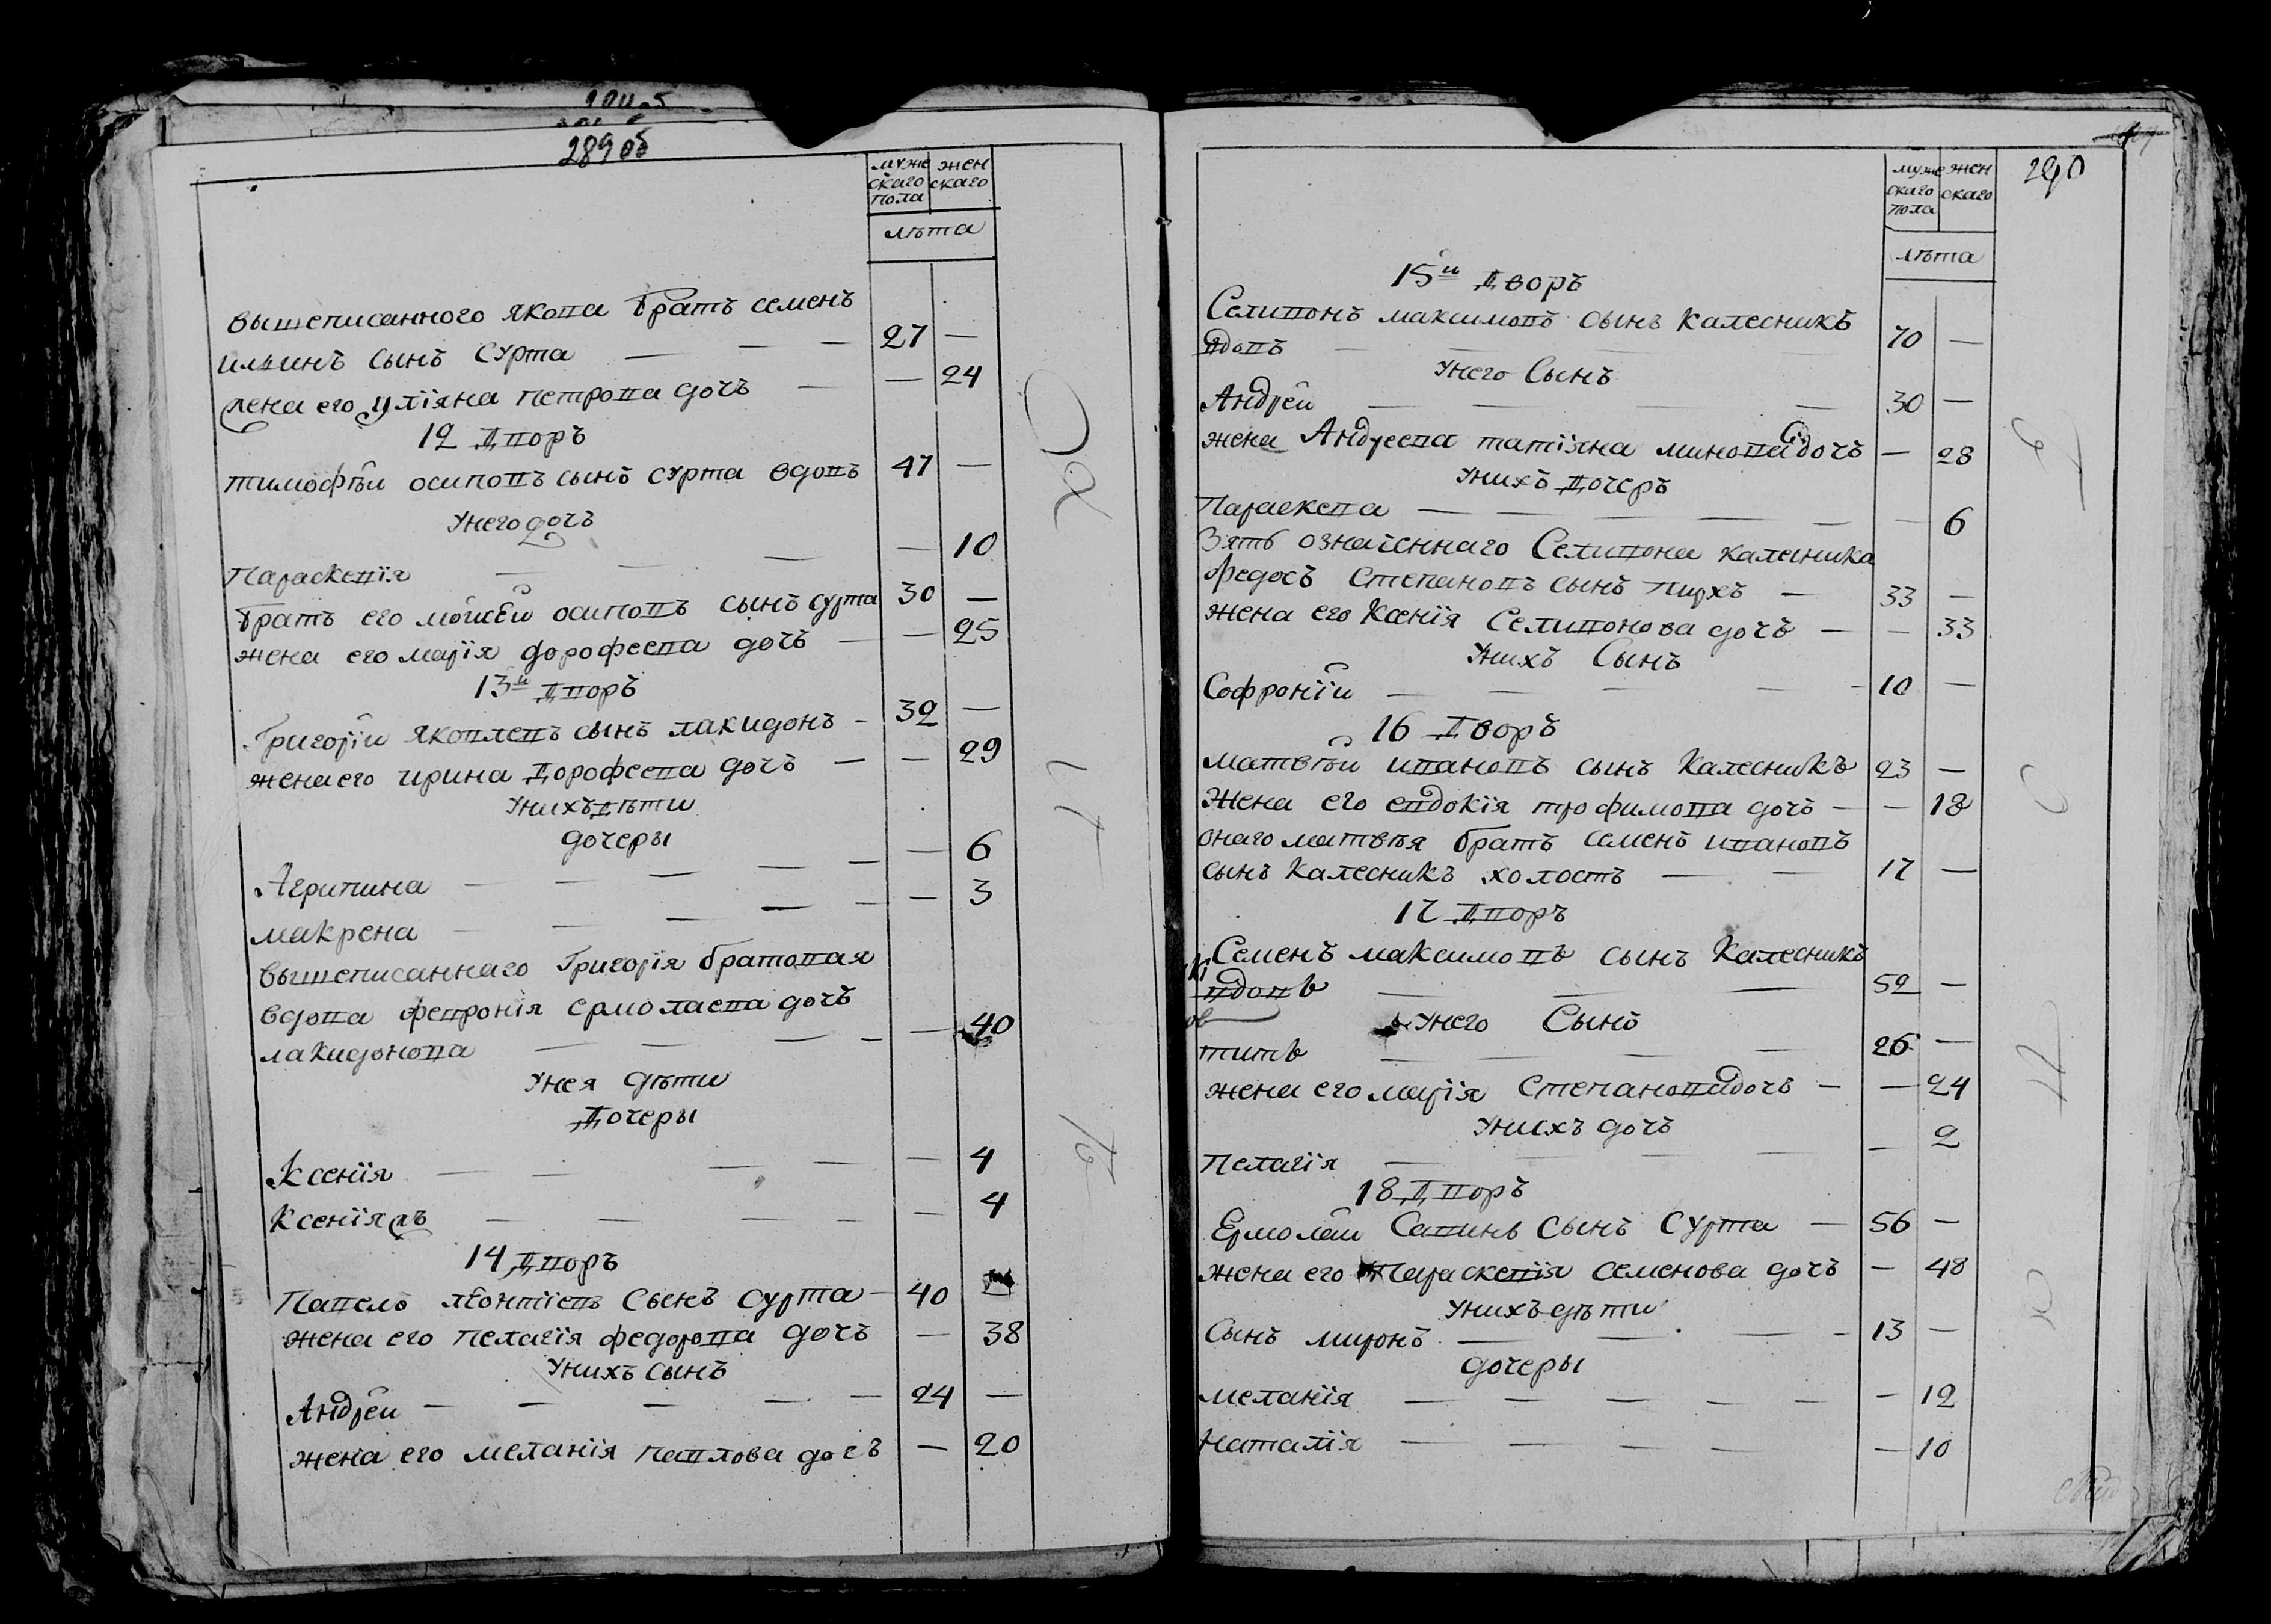 289 об
муже жен
скаго скаго
пола
лѣта
вышеписанного якова братъ семенъ
ильинъ сынъ Сурта — — — 27 —
жена его уліяна петрова дочъ — — 24
12 Дворъ
тимофѣй осиповъ сынъ сурта вдовъ 47 —
Унего дочъ
Параскевія — — — — 10
братъ его мойсей осиповъ сынъ сурта 30 —
жена его марія дорофеева дочъ — — 25
13й Дворъ
Григорій яковлевъ сынъ лакидонъ - 32 —
жена его ирина Дорофеева дочъ — — 29
Унихъ дѣти
дочеры
Агрипина — — — — — 6
макрена — — — — — 3
вышеписаннаго Григорія братовая
вдова февронія ермолаева дочъ
лакидонова — — — - — 40
Унея дѣти
Дочеры
Ксенія — — — — — 4
Ксенія жъ — — — — — 4
14 Дворъ
Павелъ леонтіевъ Сынъ Сурта — 40
жена его пелагія федорова дочъ — 38
Унихъ сынъ
Андрей — — — — — 24 —
жена его меланія павлова дочъ — 20
290
муже жен
скаго скаго
пола
лѣта
15й Дворъ
Селивонъ максимовъ сынъ Калесникъ
вдовъ — 70 —
Унего Сынъ
Андрей — — — — 30 —
жена Андреева татіяна минова дочъ — 28
Унихъ Дочеръ
Параскева — — — — — — 6
Зять означеннаго Селивона калесника
Федосъ Степановъ сынъ пирхъ — 33 —
жена его Ксенія Селивонова дочъ — — 33
Унихъ Сынъ
Софроній — — — — - 10 —
16 Дворъ
матвѣй ивановъ сынъ Калесникъ 23 —
Жена его евдокія трофимова дочъ — — 18
онаго матвѣя братъ семенъ ивановъ
сынъ Калесникъ холостъ — — 17 —
17 Дворъ
Семенъ максимовъ сынъ Калесникъ
вдовъ — — — 52 —
Унего Сынъ
титъ — — — — 26 —
жена его марія Степанова дочъ — — 24
Унихъ дочъ
Пелагія — — — — — 2
18 Дворъ
Ермолай Савинъ Сынъ Сурта — 56 —
жена его Параскевія семенова дочъ — 48
Унихъ дѣти
Сынъ миронъ — — — - 13 —
дочеры
меланія — — — — — — 12
Наталія — — — — — 10